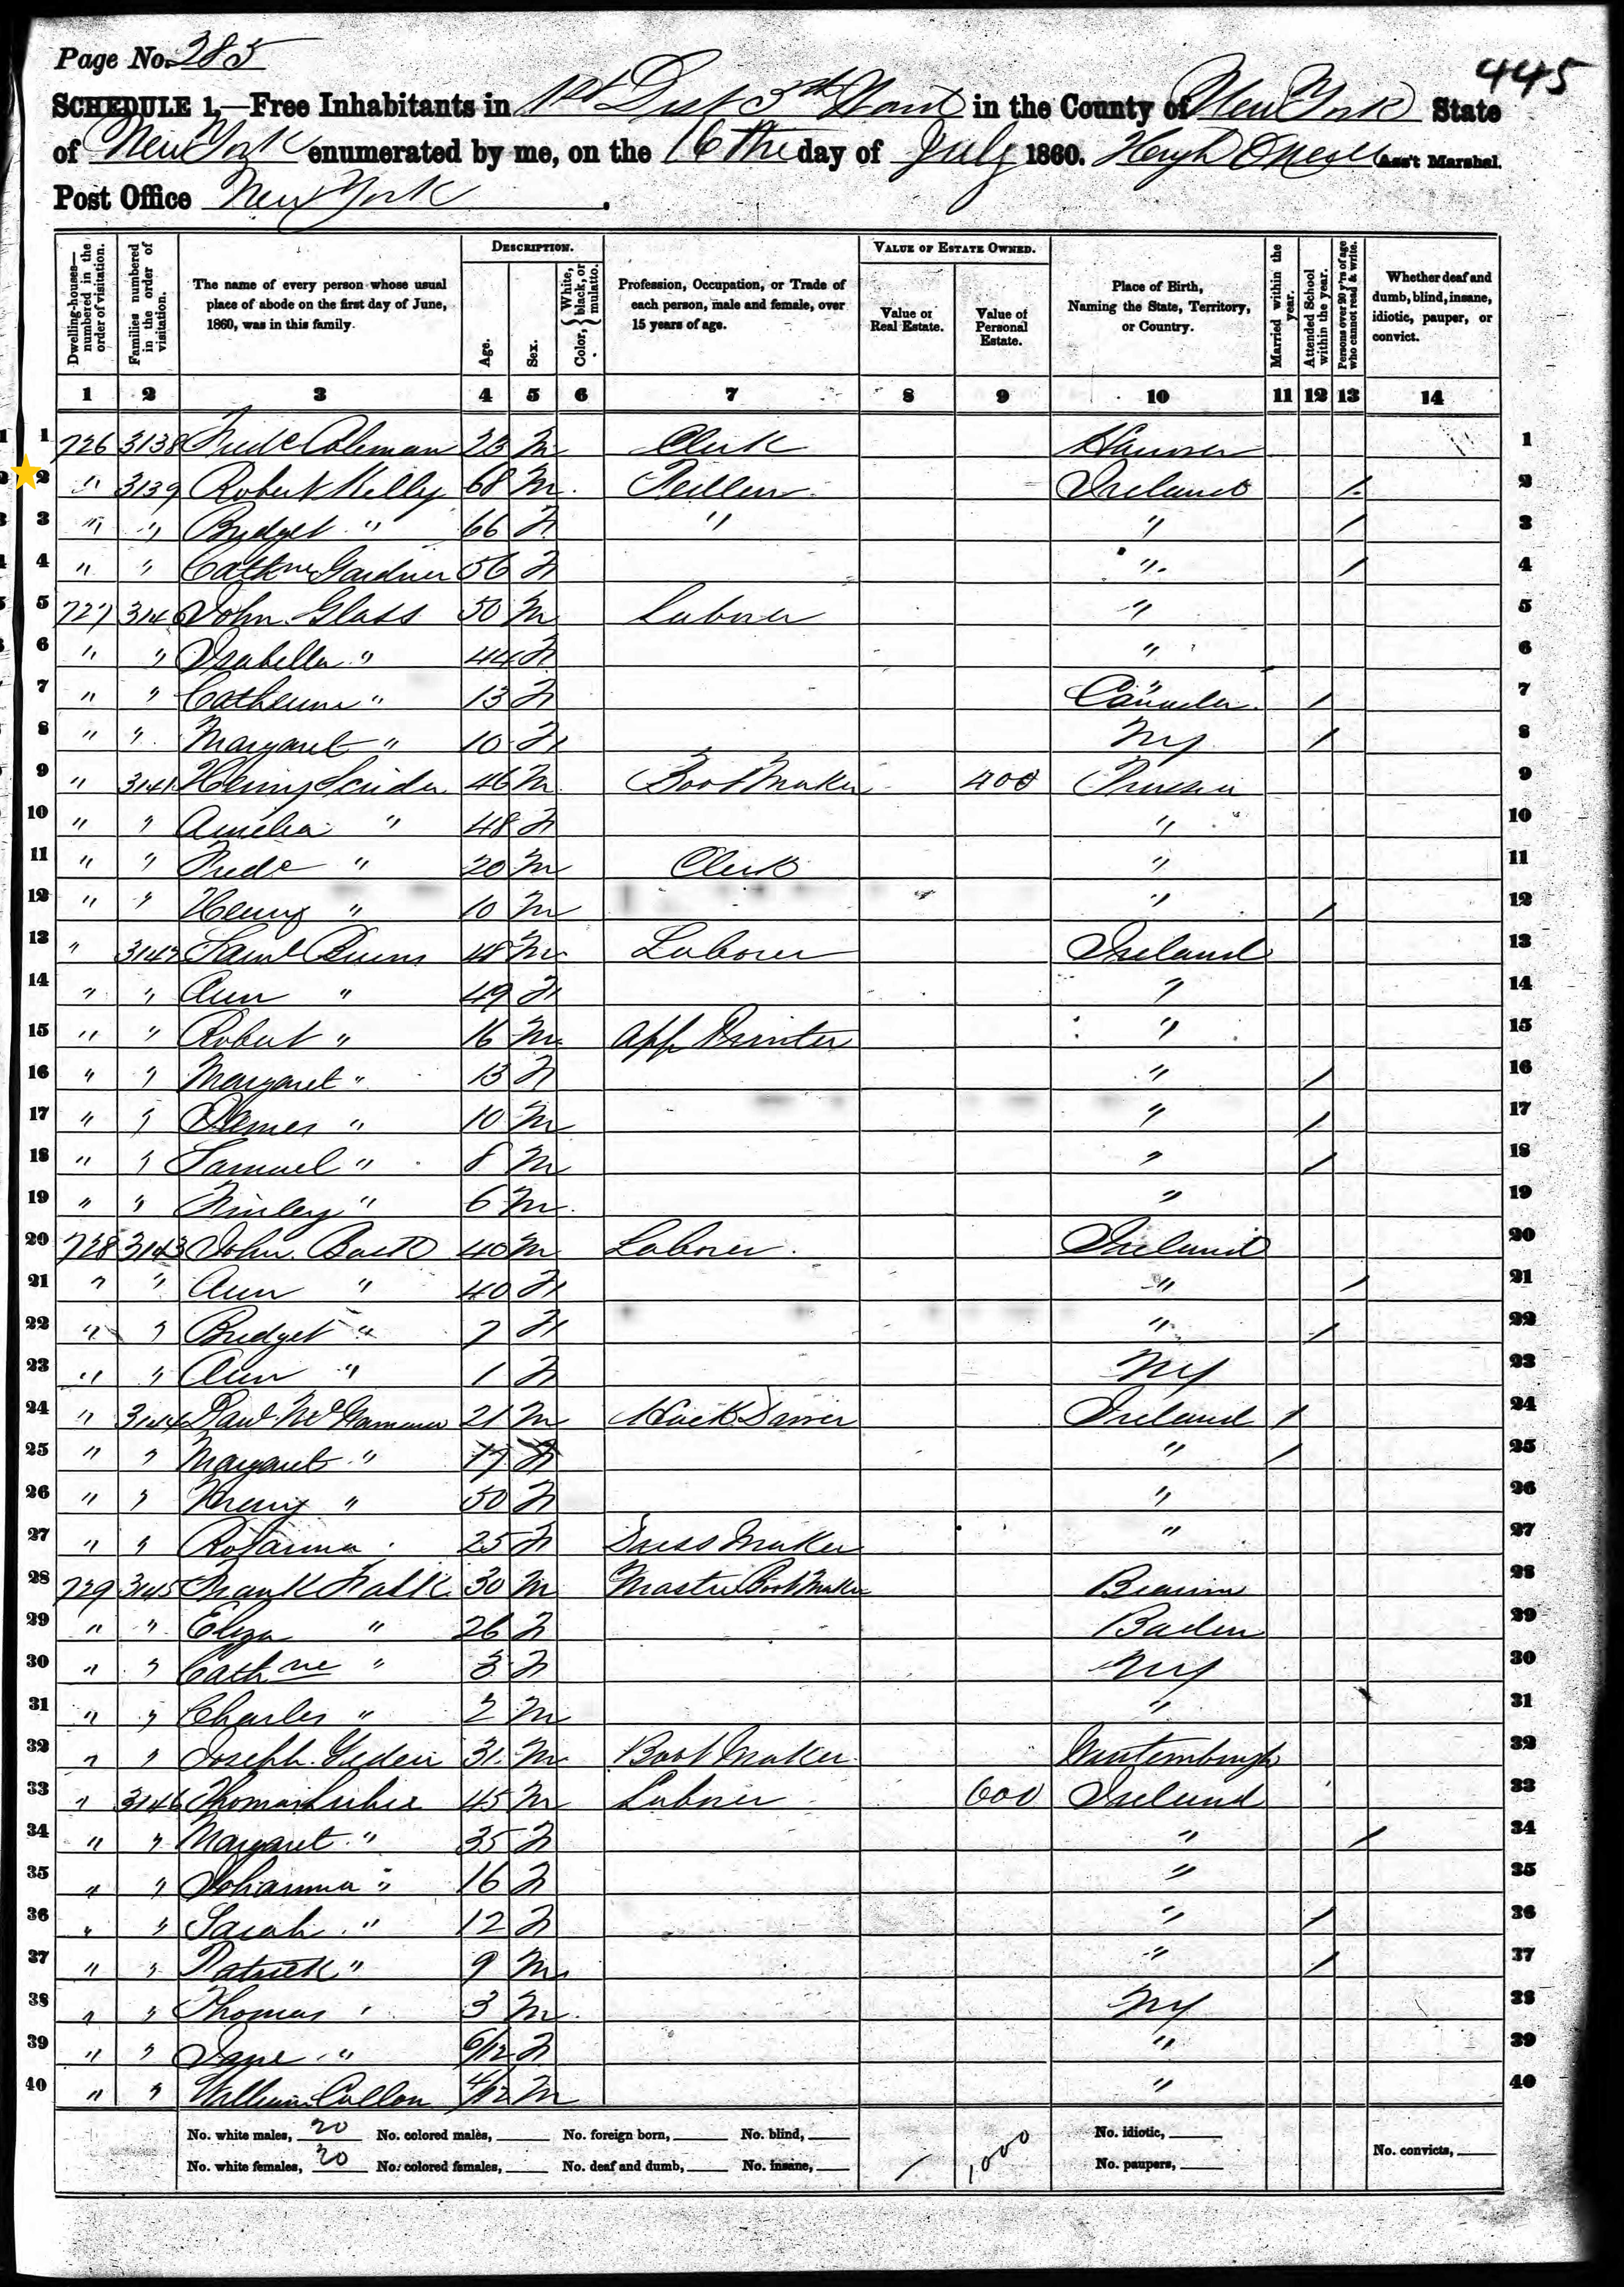 Page No. 285
445
SCHEDULE 1,—Free Inhabitants in 1st Dist 3rd Ward in the County of New York State
of New York enumerated by me, on the 16th day of July 1860. Hugh O'Neill Ass't Marshal.
Post Office New York.
Dwelling-houses—numbered in the order of visitation.
Families numbered in the order of visitation.
The name of every person whose usual place of abode on the first day of June, 1860, was in this family.
DESCRIPTION.
Age.
Sex.
Color, White, black, or mulatto.
Profession, Occupation, or Trade of each person, male and female, over 15 years of age.
VALUE OF ESTATE OWNED.
Value of Real Estate.
Value of Personal Estate.
Place of Birth, Naming the State, Territory, or Country.
Married within the year.
Attended School within the year.
Persons over 20 y'rs of age who cannot read & write.
Whether deaf and dumb, blind, insane, idiotic, pauper, or convict.
1 2 3 4 5 6 7 8 9 10 11 12 13 14
1 726 3138 Fredc Coleman 23 M Clerk Hanover 1
2 " 3139 Robert Kelly 68 M Ireland / 2
3 " " Bridget " 66 F " " / 3
4 " " Cathne Gardner 56 F " / 4
5 727 3140 John Glass 50 M Laborer " 5
6 " " Isabella " 44 F " 6
7 " " Catherine " 13 F Canada / 7
8 " " Margaret " 10 F NY / 8
9 " 3141 Henry 46 M Boot Maker 400 Prussia 9
10 " " Amelia " 48 F " 10
11 " " Fredc " 20 M Clerk " 11
12 " " Henry " 10 M " / 12
13 " 3142 Saml Burns 48 M Laborer Ireland 13
14 " " Ann " 49 F " 14
15 " " Robert " 16 M App Printer " 15
16 " " Margaret " 13 F " / 16
17 " " James " 10 M " / 17
18 " " Samuel " 8 M " / 18
19 " " Finley " 6 M " 19
20 728 3143 John 40 M Laborer Ireland 20
21 " " Ann " 40 F " / 21
22 " " Bridget " 7 F " / 22
23 " " Ann " 1 F NY 23
24 " 3144 21 M Hack Driver Ireland / 24
25 " " Margaret " 17 F " / 25
26 " " " 50 F " 26
27 " " Rosanna 25 F Dress Maker " 27
28 729 3145 Frank Falk 30 M Master Boot Maker 28
29 " " Eliza " 26 F Baden 29
30 " " Cathne " 3 F NY 30
31 " " Charles " 2 M " 31
32 " " Joseph 31 M Boot Maker Wurtemburgh 32
33 " 3146 Thomas 45 M Laborer 600 Ireland 33
34 " " Margaret " 35 F " / 34
35 " " Johanna " 16 F " 35
36 " " Sarah " 12 F " / 36
37 " " Patrick " 9 M " / 37
38 " " Thomas " 3 M NY 38
39 " " Jane " 6/12 F " 39
40 " " William Cullen 4/12 M " 40
No. white males, 20 No. colored males, No. foreign born, No. blind, No. idiotic,
No. white females, 20 No. colored females, No. deaf and dumb, No. insane, / 1,000 No. paupers, No. convicts,